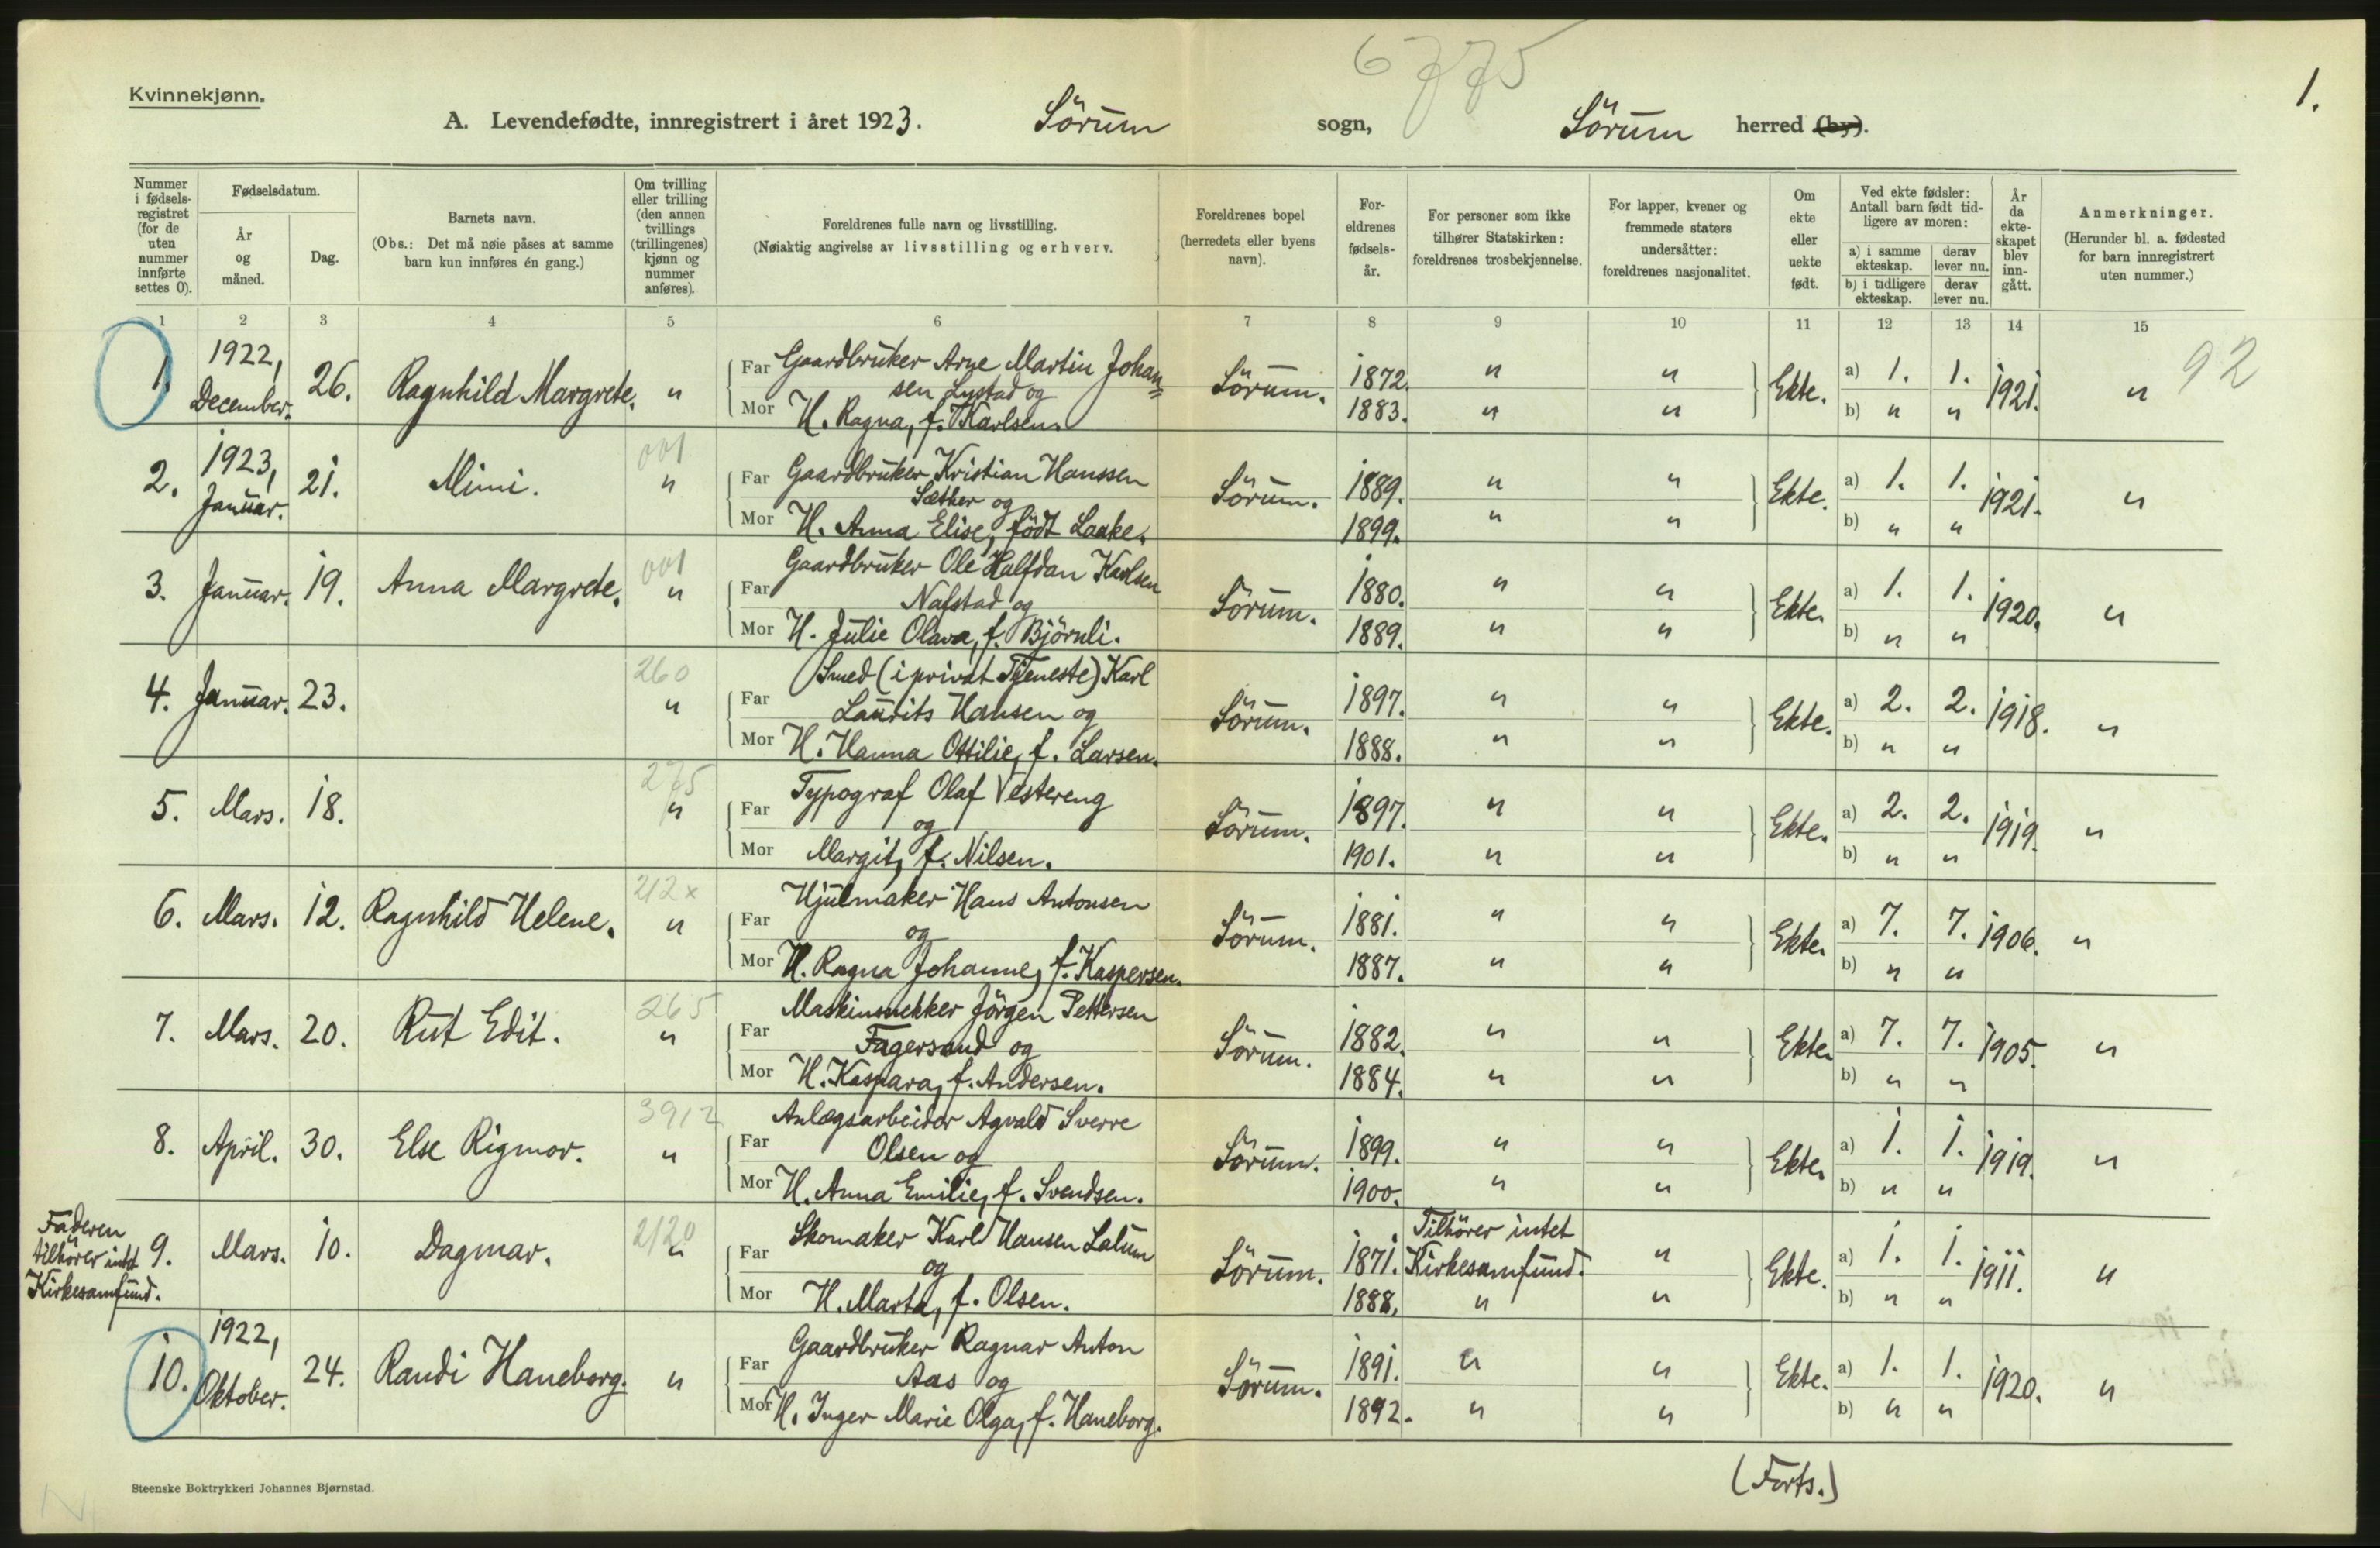 6775
1.
Kvinnekjønn.
A. Levendefødte, innregistrert i året 1923. Sörum sogn, Sörum herred (by).
Nummer i fødsels-registret (for de uten nummer innførte settes 0).
Fødselsdatum.
År og måned.
Dag.
Barnets navn.
(Obs.: Det må nøie påses at samme barn kun innføres én gang.)
Om tvilling eller trilling (den annen tvillings (trillingenes) kjønn og nummer anføres).
Foreldrenes fulle navn og livsstilling.
(Nøiaktig angivelse av livsstilling og erhverv.
Foreldrenes bopel (herredets eller byens navn).
For-eldrenes fødsels-år.
For personer som ikke tilhører Statskirken: foreldrenes trosbekjennelse.
For lapper, kvener og fremmede staters undersåtter: foreldrenes nasjonalitet.
Om ekte eller uekte født.
Ved ekte fødsler: Antall barn født tid-ligere av moren:
a) i samme ekteskap.
derav lever nu.
b) i tidligere ekteskap.
derav lever nu.
År da ekte-skapet blev inn-gått.
Anmerkninger.
(Herunder bl. a. fødested for barn innregistrert uten nummer.)
1 2 3 4 5 6 7 8 9 10 11 12 13 14 15
1. 1922, December. 26. Ragnhild Margrete. " Far Gaardbruker Arne Martin Johan=
sen Lystad og
Mor H. Ragna, f. Karlsen.
Sörum. 1872. " " Ekte. a) 1. 1. 1921. " 92
1883. " " b) " "
2. 1923, Januar. 21. Mimi. 001 " Far Gaardbruker Kristian Hanssen
Sæther og
Mor H. Anna Elise, født Laake.
Sörum. 1889. " " Ekte. a) 1. 1. 1921. "
1899. " " b) " "
3. Januar. 19. Anna Margrete. 001 " Far Gaardbruker Ole Halfdan Karlsen
Nafstad og
Mor H. Julie Olava, f. Björnli.
Sörum. 1880. " " Ekte. a) 1. 1. 1920. "
1889. " " b) " "
4. Januar. 23. 260 " Far Smed (i privat Tjeneste) Karl
Laurits Hansen og
Mor H. Hanna Ottilie, f. Larsen.
Sörum. 1897. " " Ekte. a) 2. 2. 1918. "
1888. " " b) " "
5. Mars. 18. 275 " Far Typograf Olaf Vestereng
og
Mor Margit, f. Nilsen.
Sörum. 1897. " " Ekte. a) 2. 2. 1919. "
1901. " " b) " "
6. Mars. 12. Ragnhild Helene. 212x " Far Hjulmaker Hans Antonsen
og
Mor H. Ragna Johanne, f. Kaspersen.
Sörum. 1881. " " Ekte. a) 7. 7. 1906. "
1887. " " b) " "
7. Mars. 20. Rut Edit. 265 " Far Maskinsnekker Jörgen Pettersen
Fagersand og
Mor H. Kaspara, f. Andersen.
Sörum. 1882. " " Ekte. a) 7. 7. 1905. "
1884. " " b) " "
8. April. 30. Else Rigmor. 3912 " Far Anlægsarbeider Agvald Sverre
Olsen og
Mor H. Anna Emilie, f. Svendsen.
Sörum. 1899. " " Ekte. a) 1. 1. 1919. "
1900. " " b) " "
Faderen tilhörer intet Kirkesamfund.
9. Mars. 10. Dagmar. 2120 " Far Skomaker Karl Hansen Lalum
og
Mor H. Marta, f. Olsen.
Sörum. 1871. Tilhörer intet Kirkesamfund. " Ekte. a) 1. 1. 1911. "
1888. " " b) " "
10. 1922, Oktober. 24. Randi Haneborg. " Far Gaardbruker Ragnar Anton
Aas og
Mor H. Inger Marie Olga, f. Haneborg.
Sörum. 1891. " " Ekte. a) 1. 1. 1920. "
1892. " " b) " "
(Forts.)
Steenske Boktrykkeri Johannes Bjørnstad.